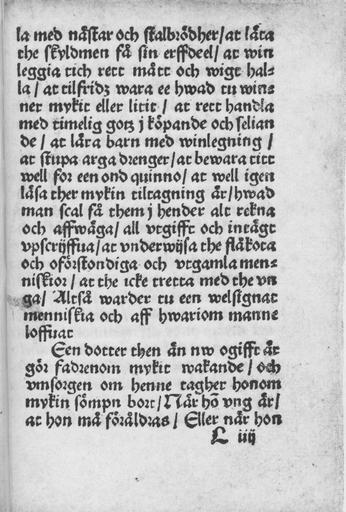 la med nästar och stalbrödher/at lära
the skyldmen få sin erffdeel/at win
leggia tich rett mått och wigt hal-
la/at tilfridz wara ee hwad tu win-
ner mykit eller litit/at rett handla
med timelig gotz j köpande och selian
de/at lära barn med winlegning/
at stupa arga drenger/at bewara titt
well for een ond quinno/at well igen
läsa ther mykin tiltagning är/hwad
man scal få them j hender alt rekna
och affwäga/all vtgifft och intägt
vpscrijffua/at vnderwijsa the flåkota
och oförstondiga och vtgamla men-
niskior/at the icke tretta med the vn
ga/Altså warder tu een welsignat
menniskia och aff hwariom manne
loffuat
Een dotter then än nw ogifft är
gör fadrenom mykit wakande/och
vmsorgen om henne tagher honom
mykin sömpn bort/När hõ vng är/
at hon må föräldras/Eller när hon
L iiij